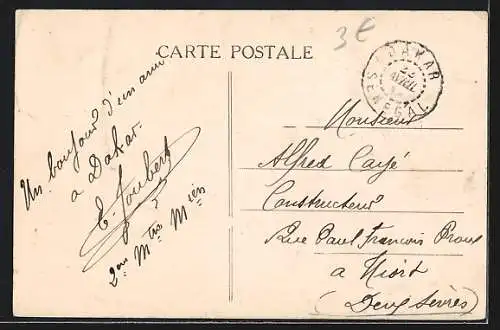 3€
CARTE POSTALE
DAKAR
22
AVRIL
SENEGAL
Un bonjour d'un ami
à Dakar.
E. Joubert
2ème Mtre Mcien
Monsieur
Alfred Cayé
Constructeur
Rue Paul François Proux
à Niort
(Deux Sèvres)